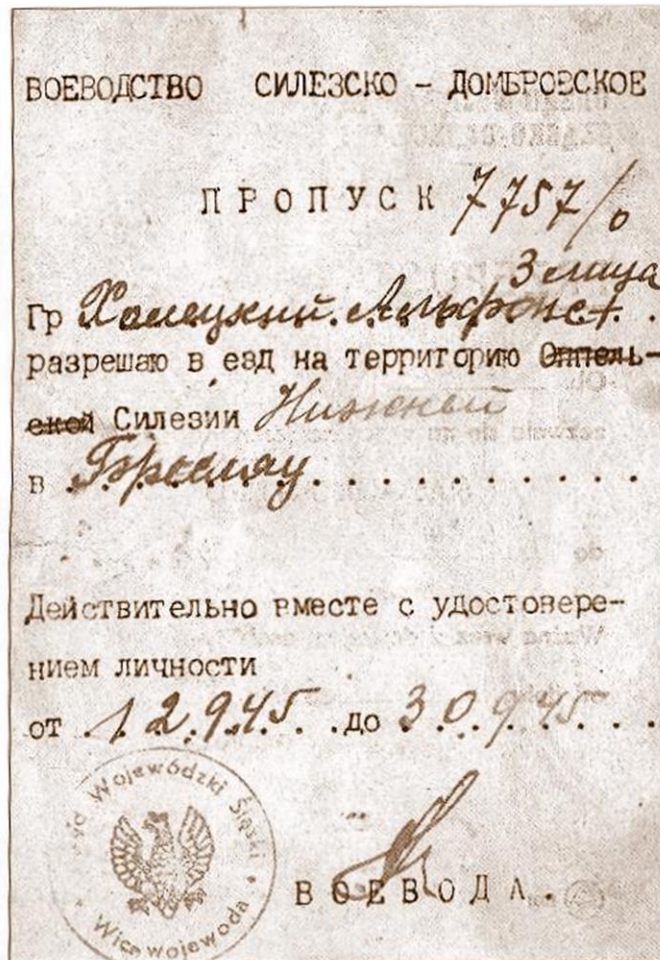 ВОЕВОДСТВО СИЛЕЗСКО - ДОМБРОВСКОЕ
ПРОПУСК 7757/0
3 лица
Гр Хомецкий Альфонс+.
разрешаю в'езд на территорию Оппель-
ской Силезии Нижней
в Бреслау. . . . . . . . . . .
Действительно вместе с удостовере-
нием личности
от 12.9.45. .до 30.9.45. . .
Wojewódzki Śląski
Wicewojewoda
ВОЕВОДА.